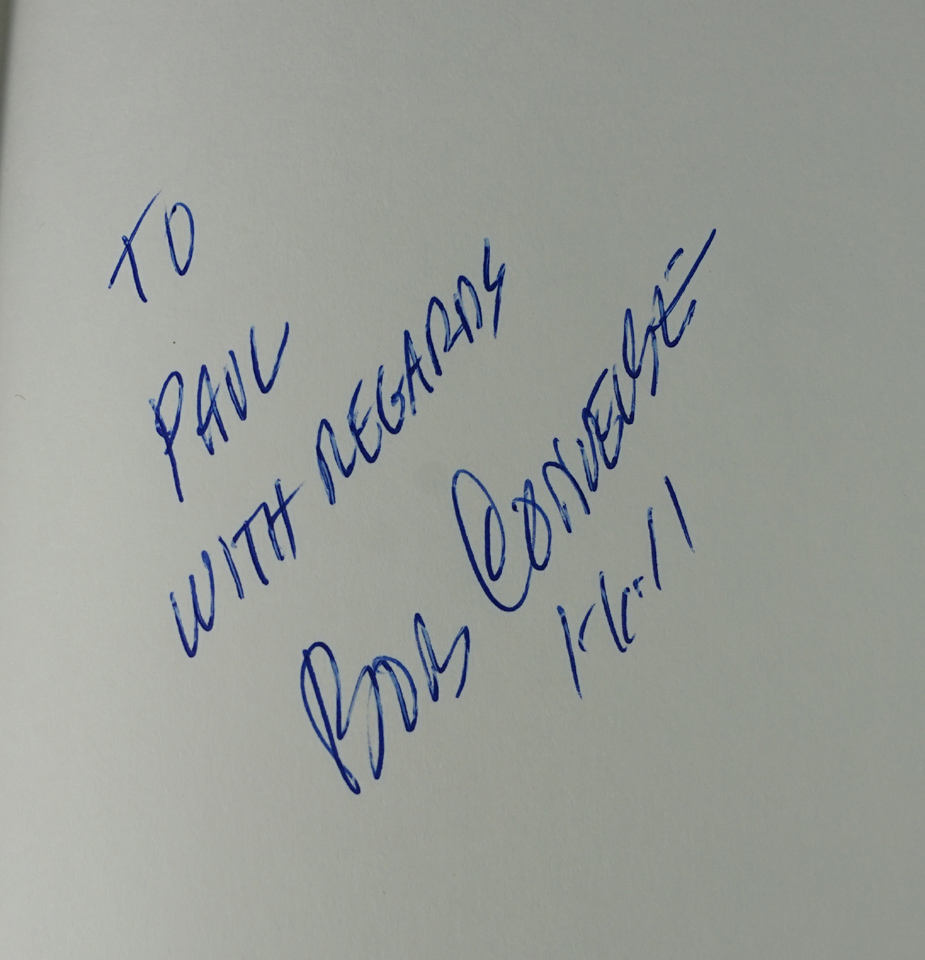 TO
PAUL
WITH REGARDS
BOB CONVERSE